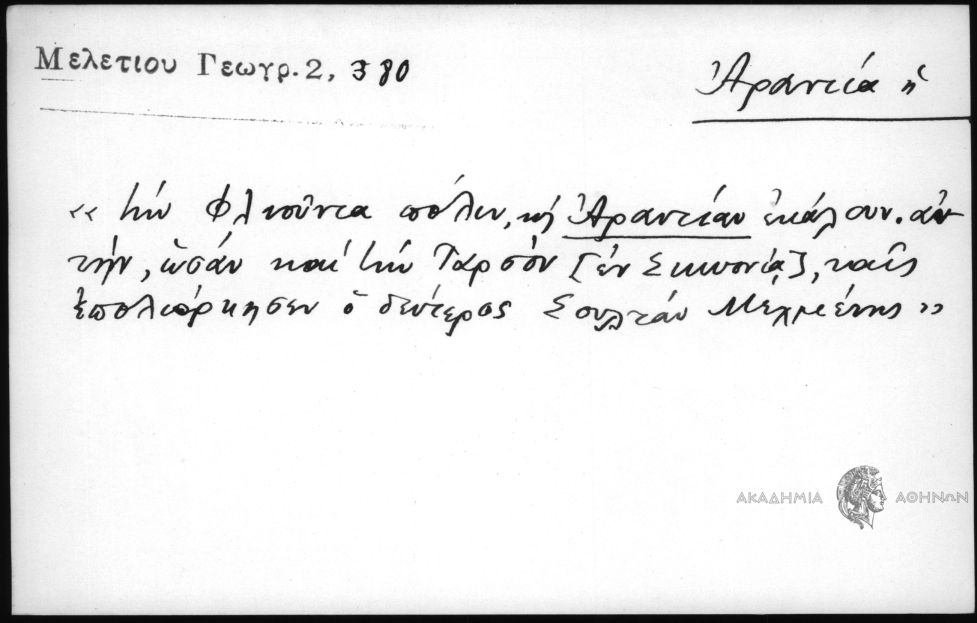 Μελετιου Γεωγρ. 2, 380
Ἀραντία ἡ
«τὴν Φλιοῦντα πόλιν, κ᾽ Ἀραντίαν ἐκάλουν αὐ-
τήν, ὡσάν καί τὴν Ταρσόν [ἐν Σικυονίᾳ],
ἐπολιόρκησεν ὁ δεύτερος Σουλτάν Μεχμέτης»
ΑΚΑΔΗΜΙΑ ΑΘΗΝΩΝ